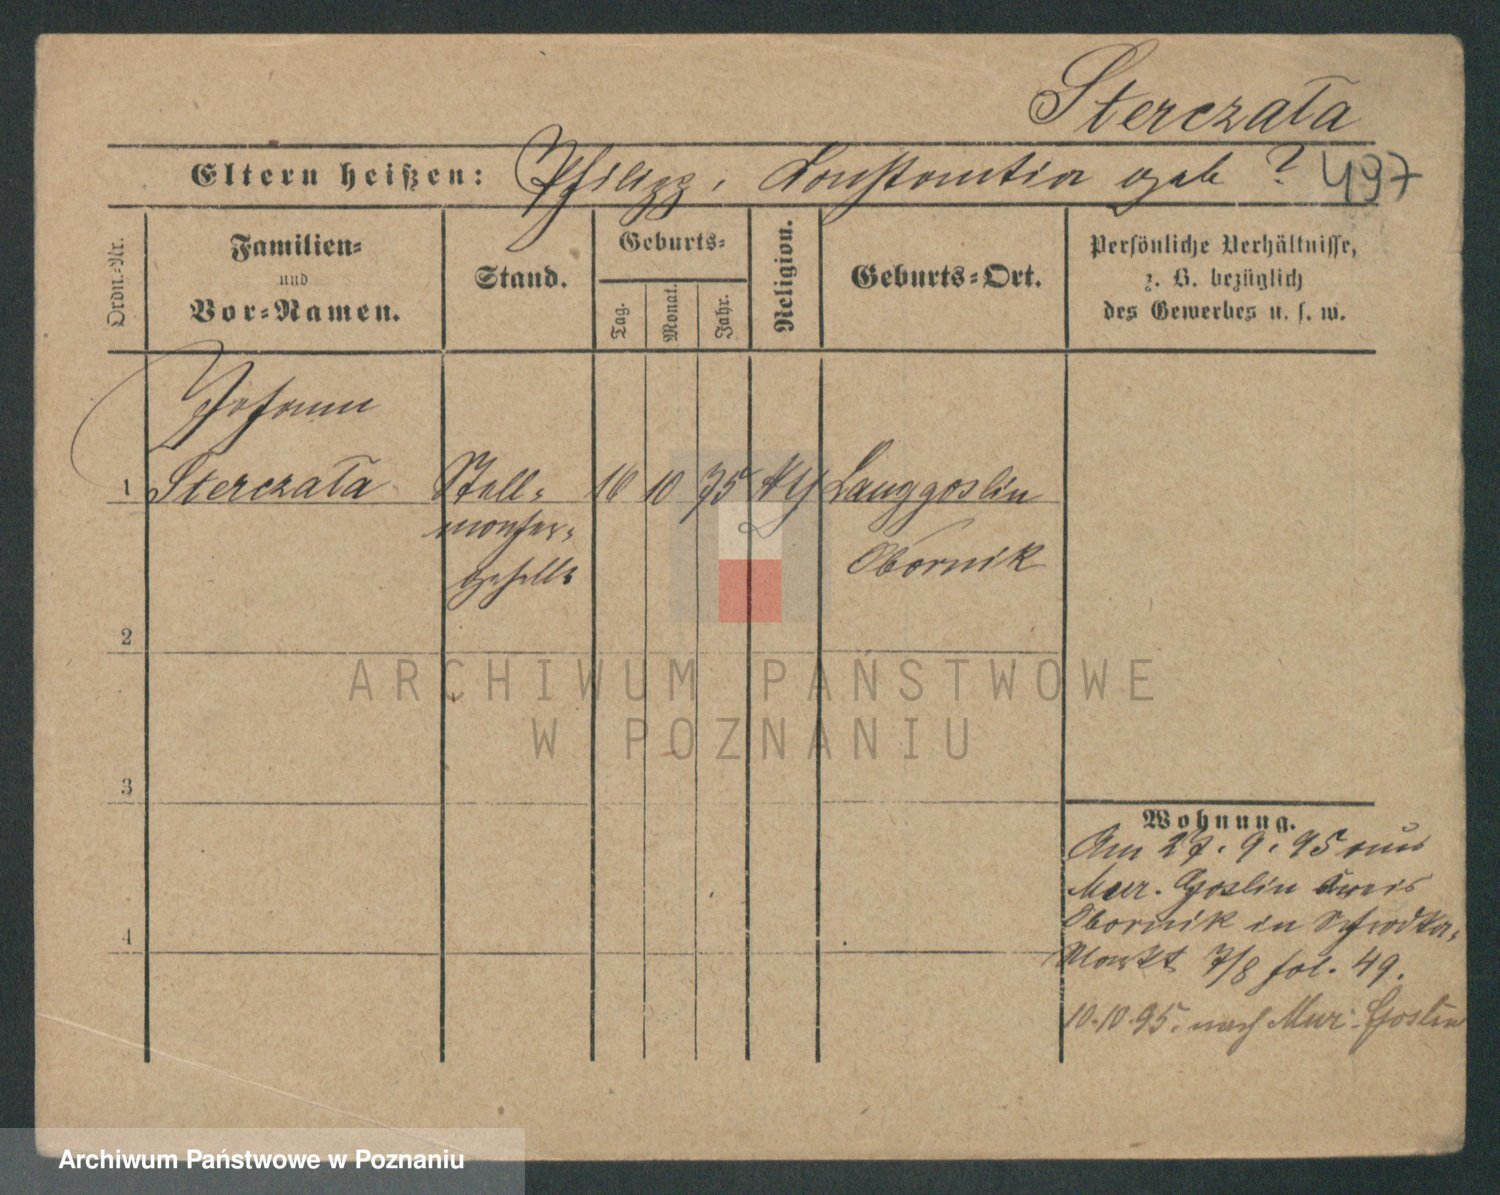 Sterczała
Eltern heißen: Philipp, Konstantia geb ? 497
Ordn.=Nr.
Familien=
und
Vor=Namen.
Stand.
Geburts=
Tag.
Monat.
Jahr.
Religion.
Geburts=Ort.
Persönliche Verhältnisse,
z. B. bezüglich
des Gewerbes u. s. w.
Johann
1 Sterczała Stell= 16 10 75 Langgoslin
macher=
geselle
Obornik
2
3
4
Wohnung.
Am 27. 9. 95 aus
Mur. Goslin Kreis
Obornik in Schrodka=
Markt 7/8 fol. 49.
10.10.95. nach Mur. Goslin
ARCHIWUM PAŃSTWOWE
W POZNANIU
Archiwum Państwowe w Poznaniu